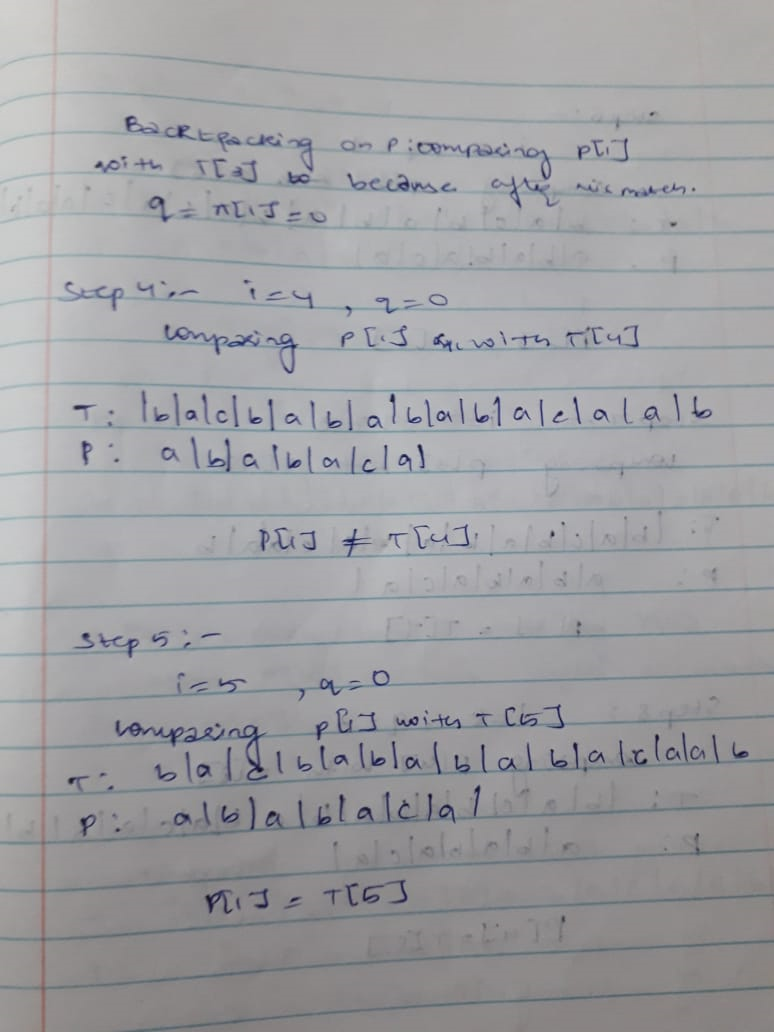 Backtracking on P: comparing P[1]
with T[3] be because after mismatch.
q = π[1] = 0
Step 4:- i=4 , q=0
comparing P[1] with T[4]
T: |b|a|c|b|a|b|a|b|a|b|a|c|a|a|b
P: a|b|a|b|a|c|a|
P[1] ≠ T[4].
Step 5:-
i=5 , q=0
comparing P[1] with T[5]
T: b|a|c|b|a|b|a|b|a|b|a|c|a|a|b
P: a|b|a|b|a|c|a|
P[1] = T[5]